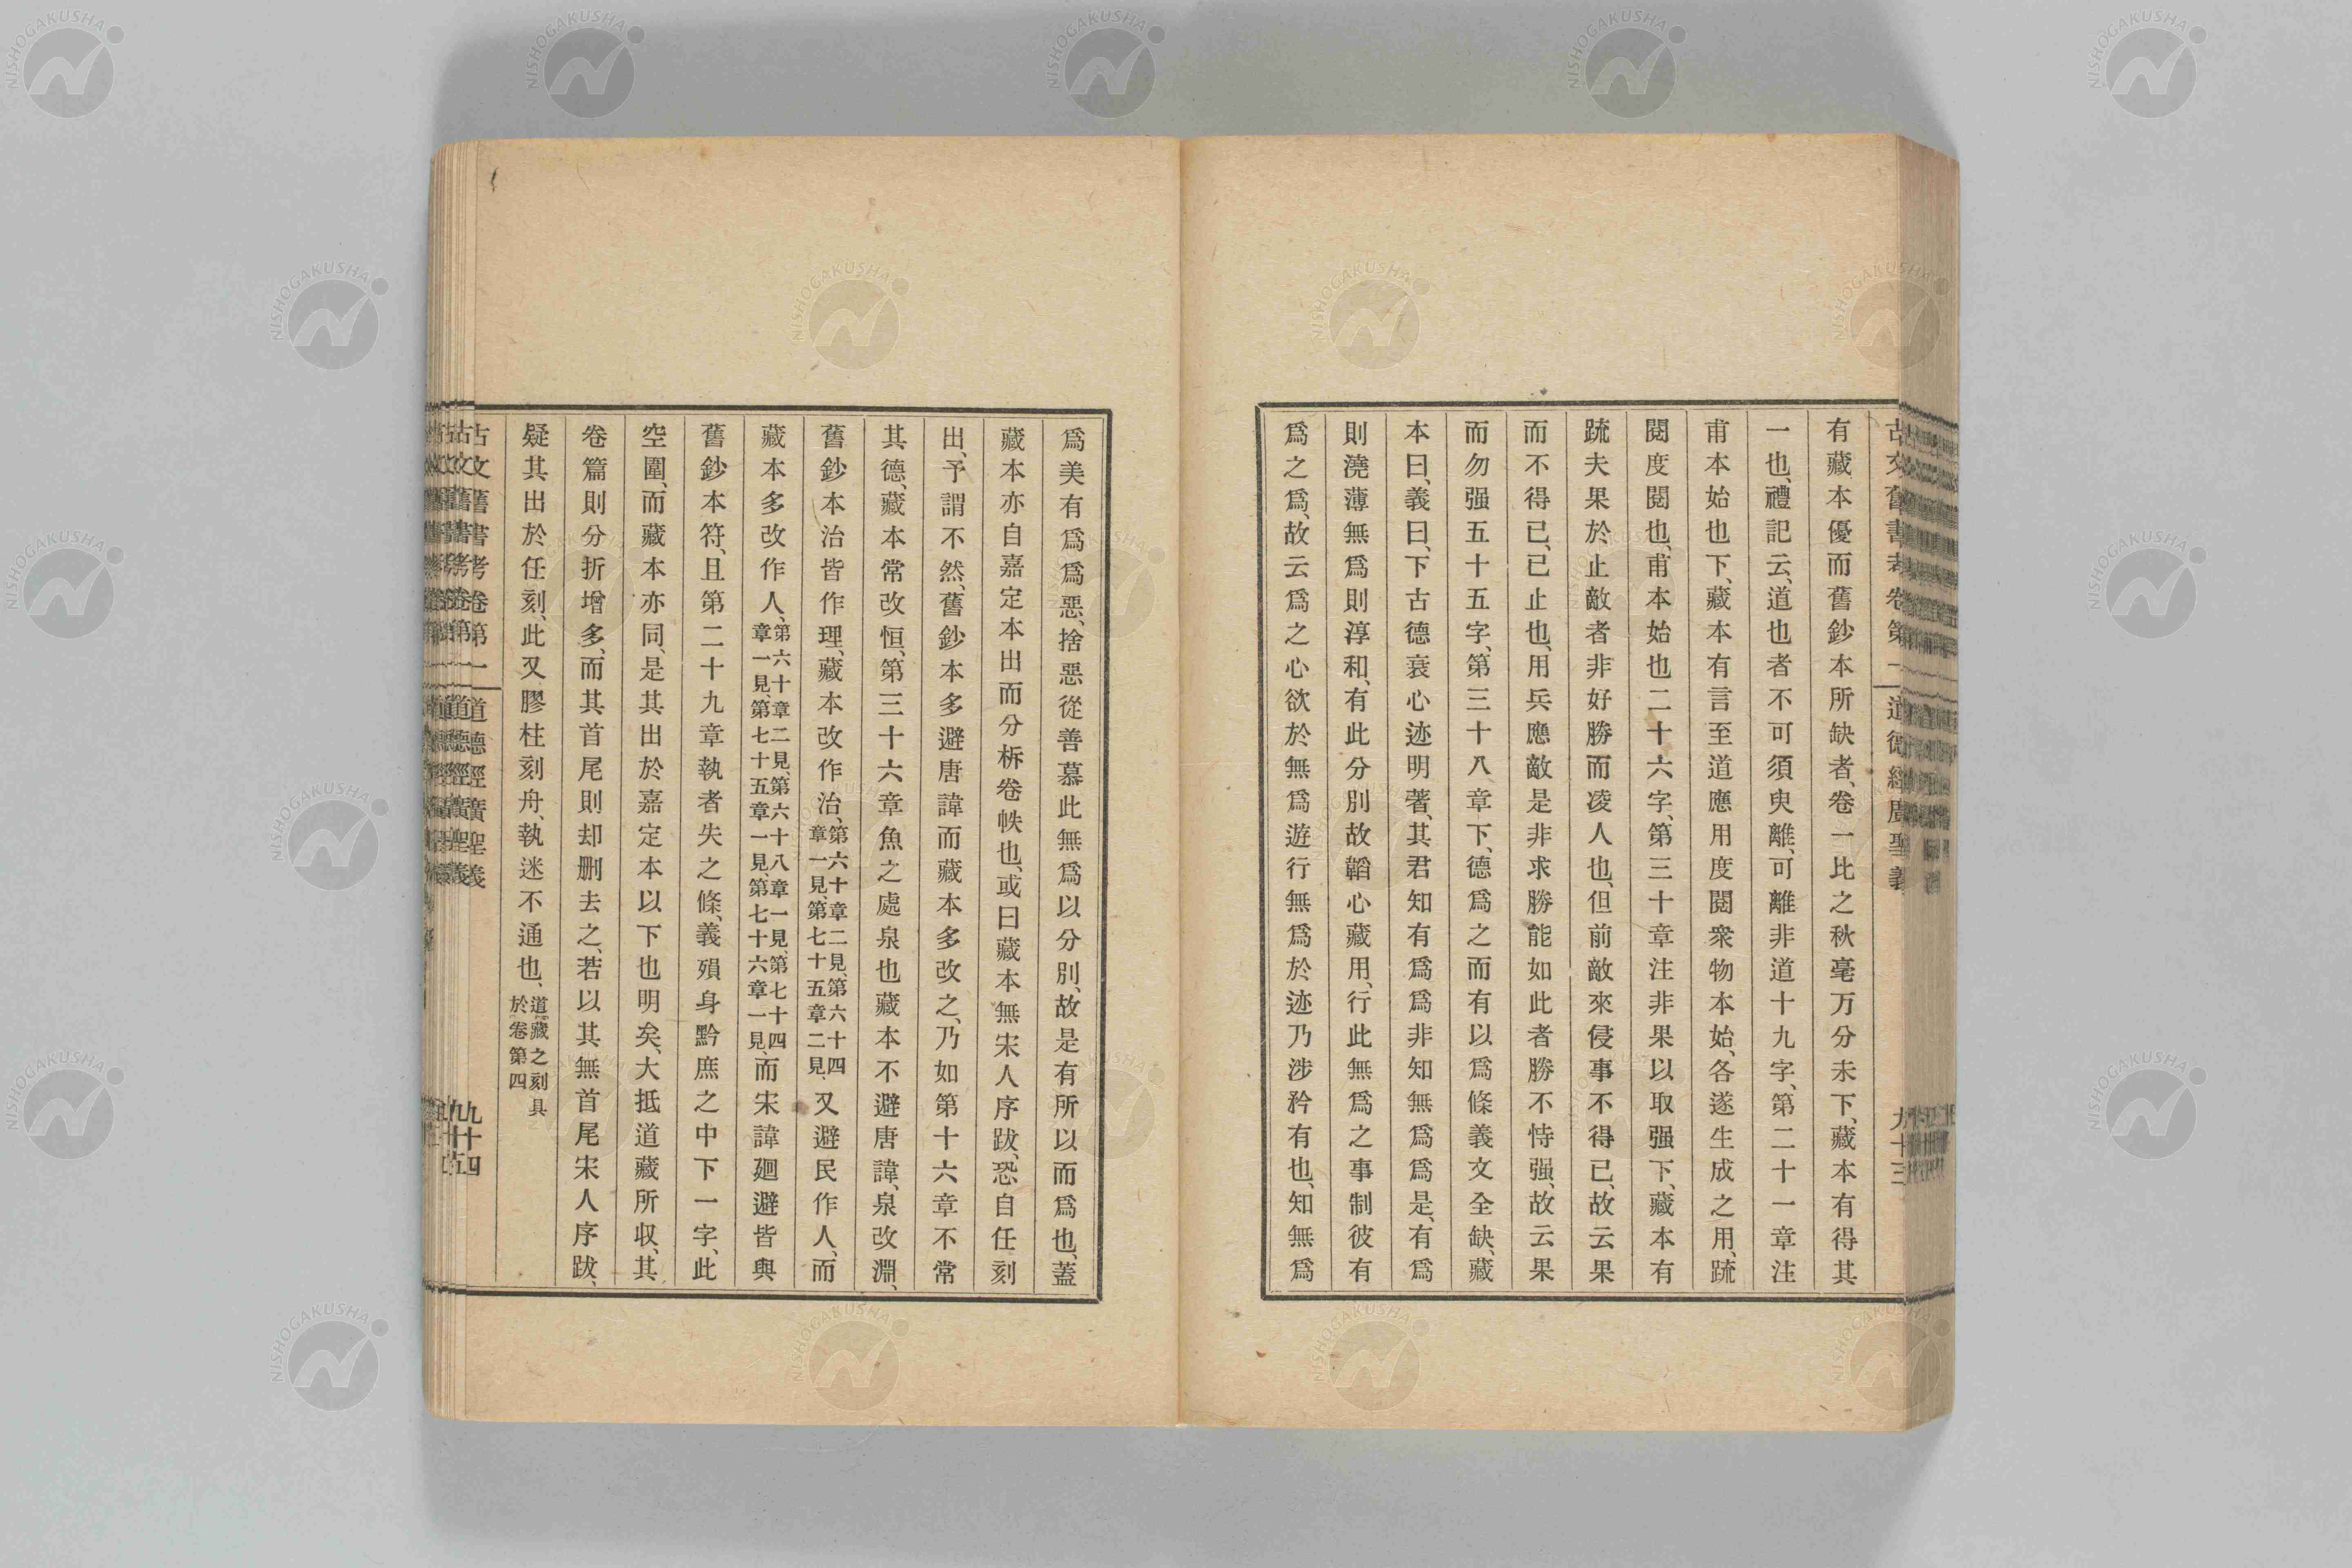 古文舊書考卷第一 道德經廣聖義 九十三
有藏本優而舊鈔本所缺者、卷一比之秋毫万分未下、藏本有得其
一也、禮記云、道也者不可須臾離、可離非道十九字、第二十一章注
甫本始也下、藏本有言至道應用度閱衆物本始、各遂生成之用、疏
閱度閱也、甫本始也二十六字、第三十章注非果以取强下、藏本有
疏夫果於止敵者非好勝而凌人也、但前敵來侵事不得已、故云果
而不得已、已止也、用兵應敵是非求勝能如此者勝不恃强、故云果
而勿强五十五字、第三十八章下、德爲之而有以爲條義文全缺、藏
本曰、義曰、下古德衰心迹明著、其君知有爲爲非知無爲爲是、有爲
則澆薄無爲則淳和、有此分別故韜心藏用、行此無爲之事制彼有
爲之爲、故云爲之心欲於無爲遊行無爲於迹乃涉矜有也、知無爲
爲美有爲爲惡、捨惡從善慕此無爲以分別、故是有所以而爲也、蓋
藏本亦自嘉定本出而分柝卷帙也、或曰藏本無宋人序跋、恐自任刻
出、予謂不然、舊鈔本多避唐諱而藏本多改之、乃如第十六章不常
其德、藏本常改恒、第三十六章魚之處泉也藏本不避唐諱、泉改淵、
舊鈔本治皆作理、藏本改作治、第六十章二見、第六十四章一見、第七十五章二見、又避民作人、而
藏本多改作人、第六十章二見、第六十八章一見、第七十四章一見、第七十五章一見、第七十六章一見、而宋諱廻避皆與
舊鈔本符、且第二十九章執者失之條、義殞身黔庶之中下一字、此
空圍、而藏本亦同、是其出於嘉定本以下也明矣、大抵道藏所収、其
卷篇則分折增多、而其首尾則却删去之、若以其無首尾宋人序跋、
疑其出於任刻、此又膠柱刻舟、執迷不通也、道藏之刻具於卷第四
古文舊書考卷第一 道德經廣聖義 九十四